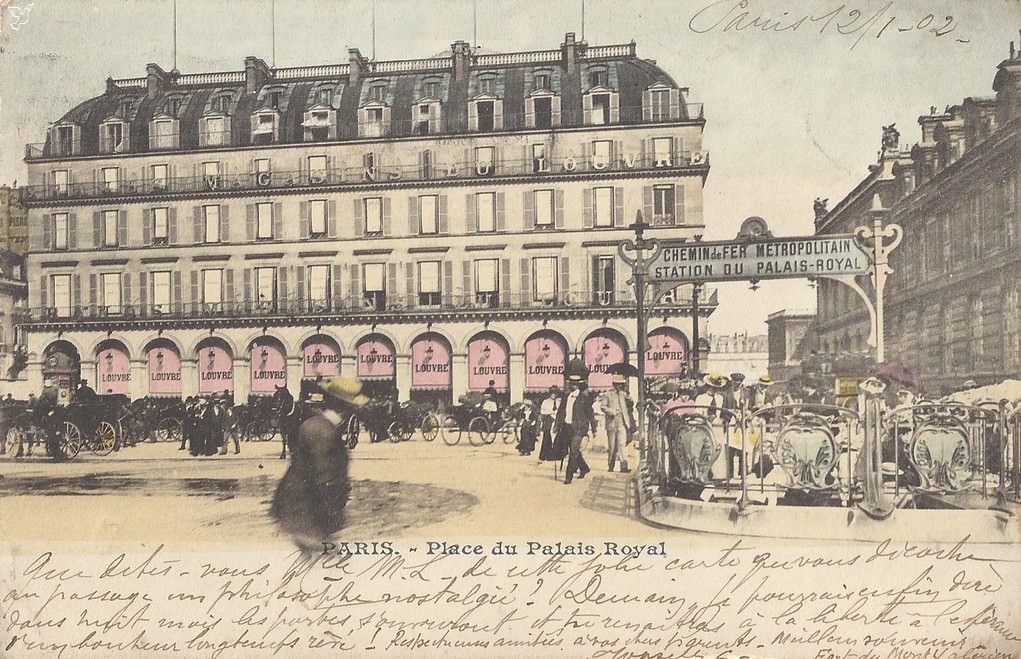 Paris 12/1-02-
MAGASINS DU LOUVRE
CHEMIN de FER METROPOLITAIN
STATION DU PALAIS-ROYAL
LOUVRE LOUVRE LOUVRE LOUVRE LOUVRE LOUVRE LOUVRE LOUVRE LOUVRE LOUVRE LOUVRE
PARIS. - Place du Palais Royal
Que dites-vous M.L. de cette jolie carte que vous décoche
au passage un philosophe nostalgic? Demain, je pourrais enfin dire
dans huit mois les portes s'ouvriront et je renaîtrai à la liberté à l'espérance
d'un bonheur longtemps rêvé! Respectueuses amitiés à vos chers parents - Meilleur souvenir
Fort du Mont Valérien